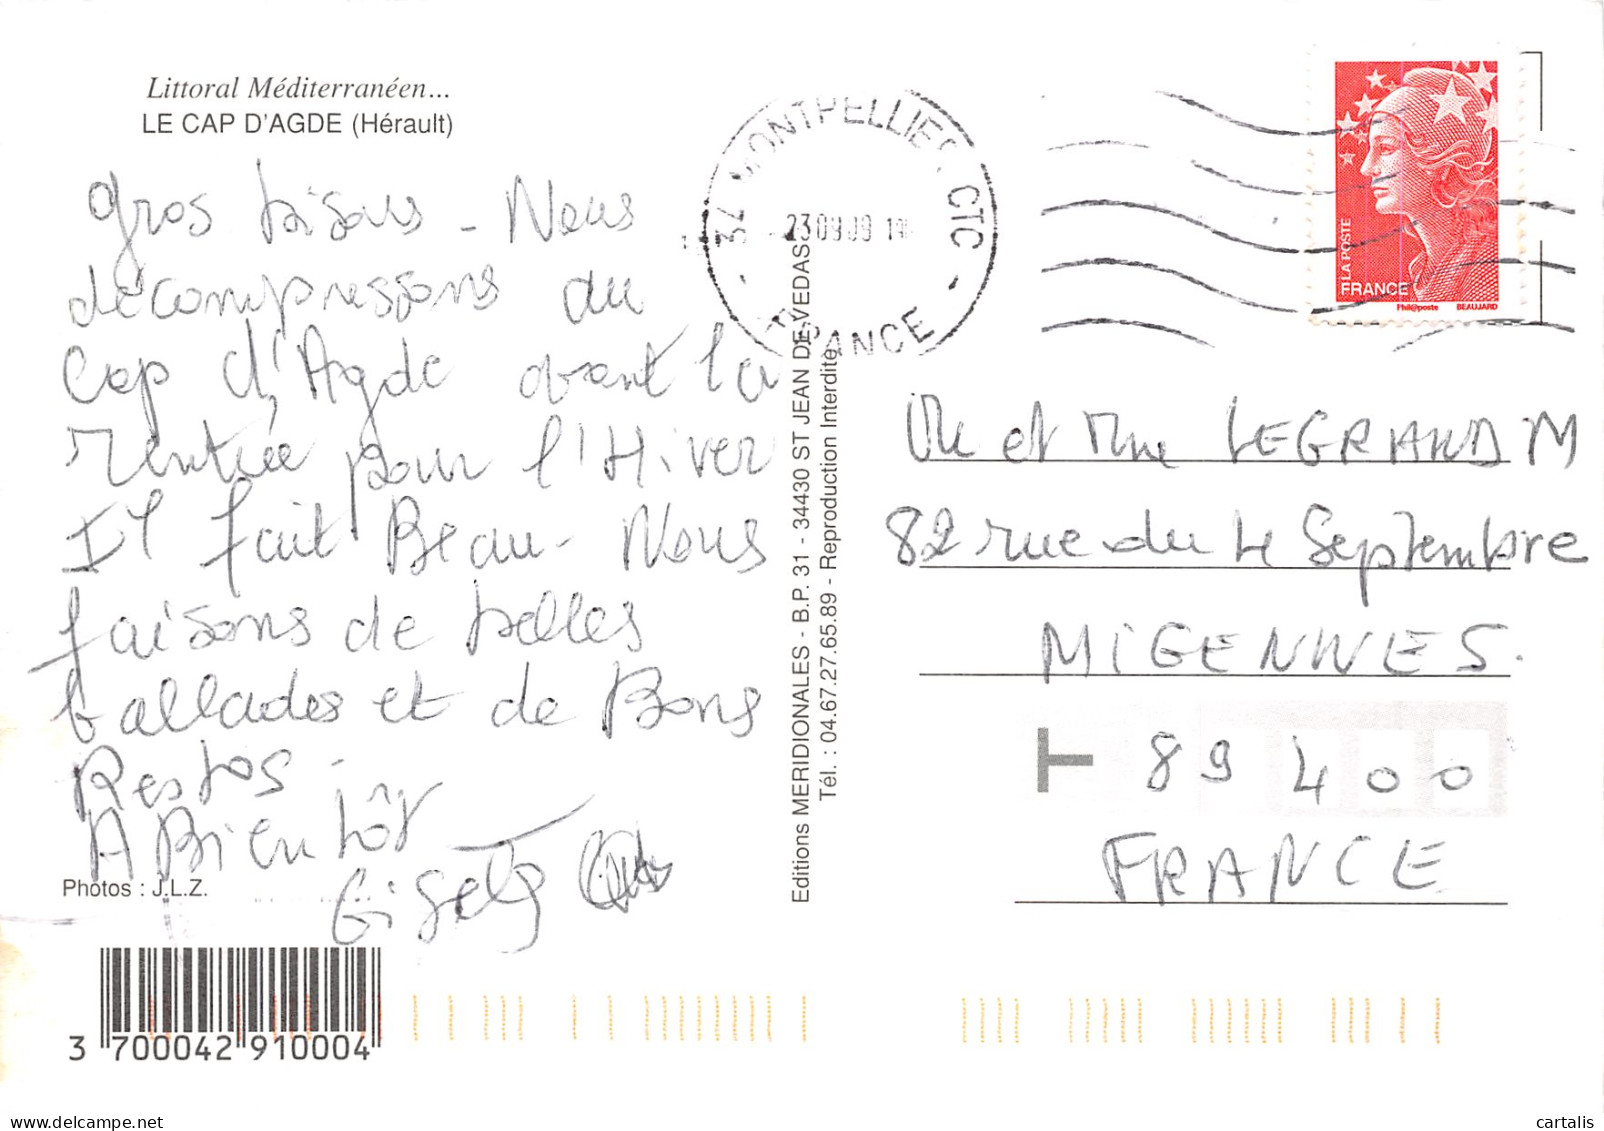 Littoral Méditerranéen...
LE CAP D'AGDE (Hérault)
Gros bisous - Nous
décompressons au
Cap d'Agde avant la
rentrée pour l'Hiver
Il fait Beau - Nous
faisons de belles
ballades et de Bons
Restos -
A Bientôt
Photos : J.L.Z.
3 700042 910004
Editions MERIDIONALES - B.P. 31 - 34430 ST JEAN DE VEDAS
Tél. : 04.67.27.65.89 - Reproduction Interdite
34 MONTPELLIER CTC
23 09 09
FRANCE
LA POSTE
FRANCE
Phil@poste BEAUJARD
Mr et Mme LEGRAND M
82 rue du 4 Septembre
MIGENNES.
T 89 400
FRANCE
cartalis